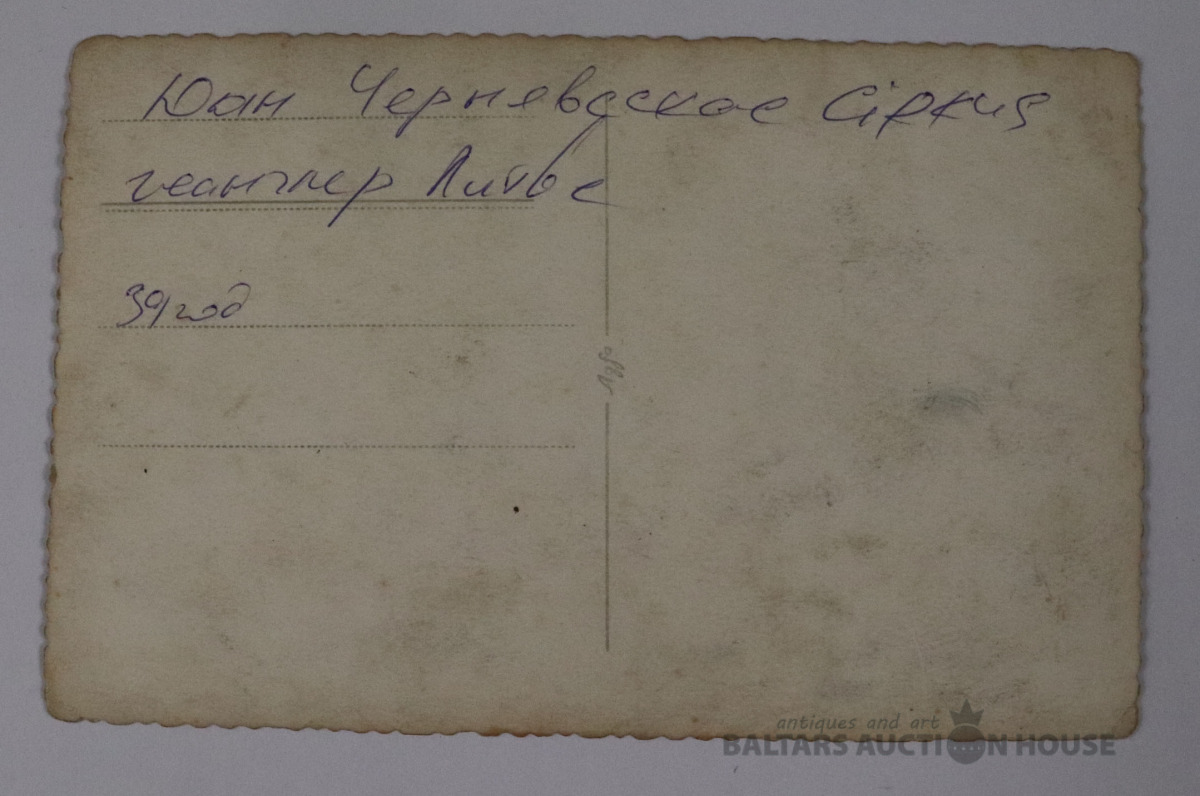 Юан Чернявское
Литве
39 год
Agfa
antiques and art
BALTARS AUCTION HOUSE